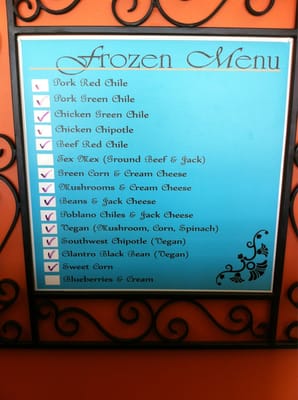 Frozen Menu
Pork Red Chile
Pork Green Chile
Chicken Green Chile
Chicken Chipotle
Beef Red Chile
Sex Mex (Ground Beef & Jack)
Green Corn & Cream Cheese
Mushrooms & Cream Cheese
Beans & Jack Cheese
Poblano Chiles & Jack Cheese
Vegan (Mushroom, Corn, Spinach)
Southwest Chipotle (Vegan)
Cilantro Black Bean (Vegan)
Sweet Corn
Blueberries & Cream